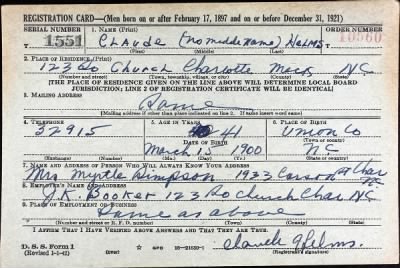 REGISTRATION CARD—(Men born on or after February 17, 1897 and on or before December 31, 1921)
SERIAL NUMBER 1. NAME (Print) ORDER NUMBER
T 1551 CLAUDE (no middle name) HELMS 10560
(First) (Middle) (Last)
2. PLACE OF RESIDENCE (Print)
123 So Church Charlotte Meck NC
(Number and street) (Town, township, village, or city) (County) (State)
[THE PLACE OF RESIDENCE GIVEN ON THE LINE ABOVE WILL DETERMINE LOCAL BOARD
JURISDICTION; LINE 2 OF REGISTRATION CERTIFICATE WILL BE IDENTICAL]
3. MAILING ADDRESS
Same
(Mailing address if other than place indicated on line 2. If same insert word same)
4. TELEPHONE 5. AGE IN YEARS 6. PLACE OF BIRTH
32915 41 Union Co
DATE OF BIRTH (Town or county)
March 15 1900 N C
(Exchange) (Number) (Mo.) (Day) (Yr.) (State or country)
7. NAME AND ADDRESS OF PERSON WHO WILL ALWAYS KNOW YOUR ADDRESS
Mrs Myrtle Simpson 1933 Carson St Char NC
8. EMPLOYER'S NAME AND ADDRESS
J.K. Booker 123 So Church Char. NC
9. PLACE OF EMPLOYMENT OR BUSINESS
Same as above
(Number and street or R. F. D. number) (Town) (County) (State)
I AFFIRM THAT I HAVE VERIFIED ABOVE ANSWERS AND THAT THEY ARE TRUE.
D. S. S. Form 1
(Revised 1-1-42) GPO 16—21630-1 Claude Helms.